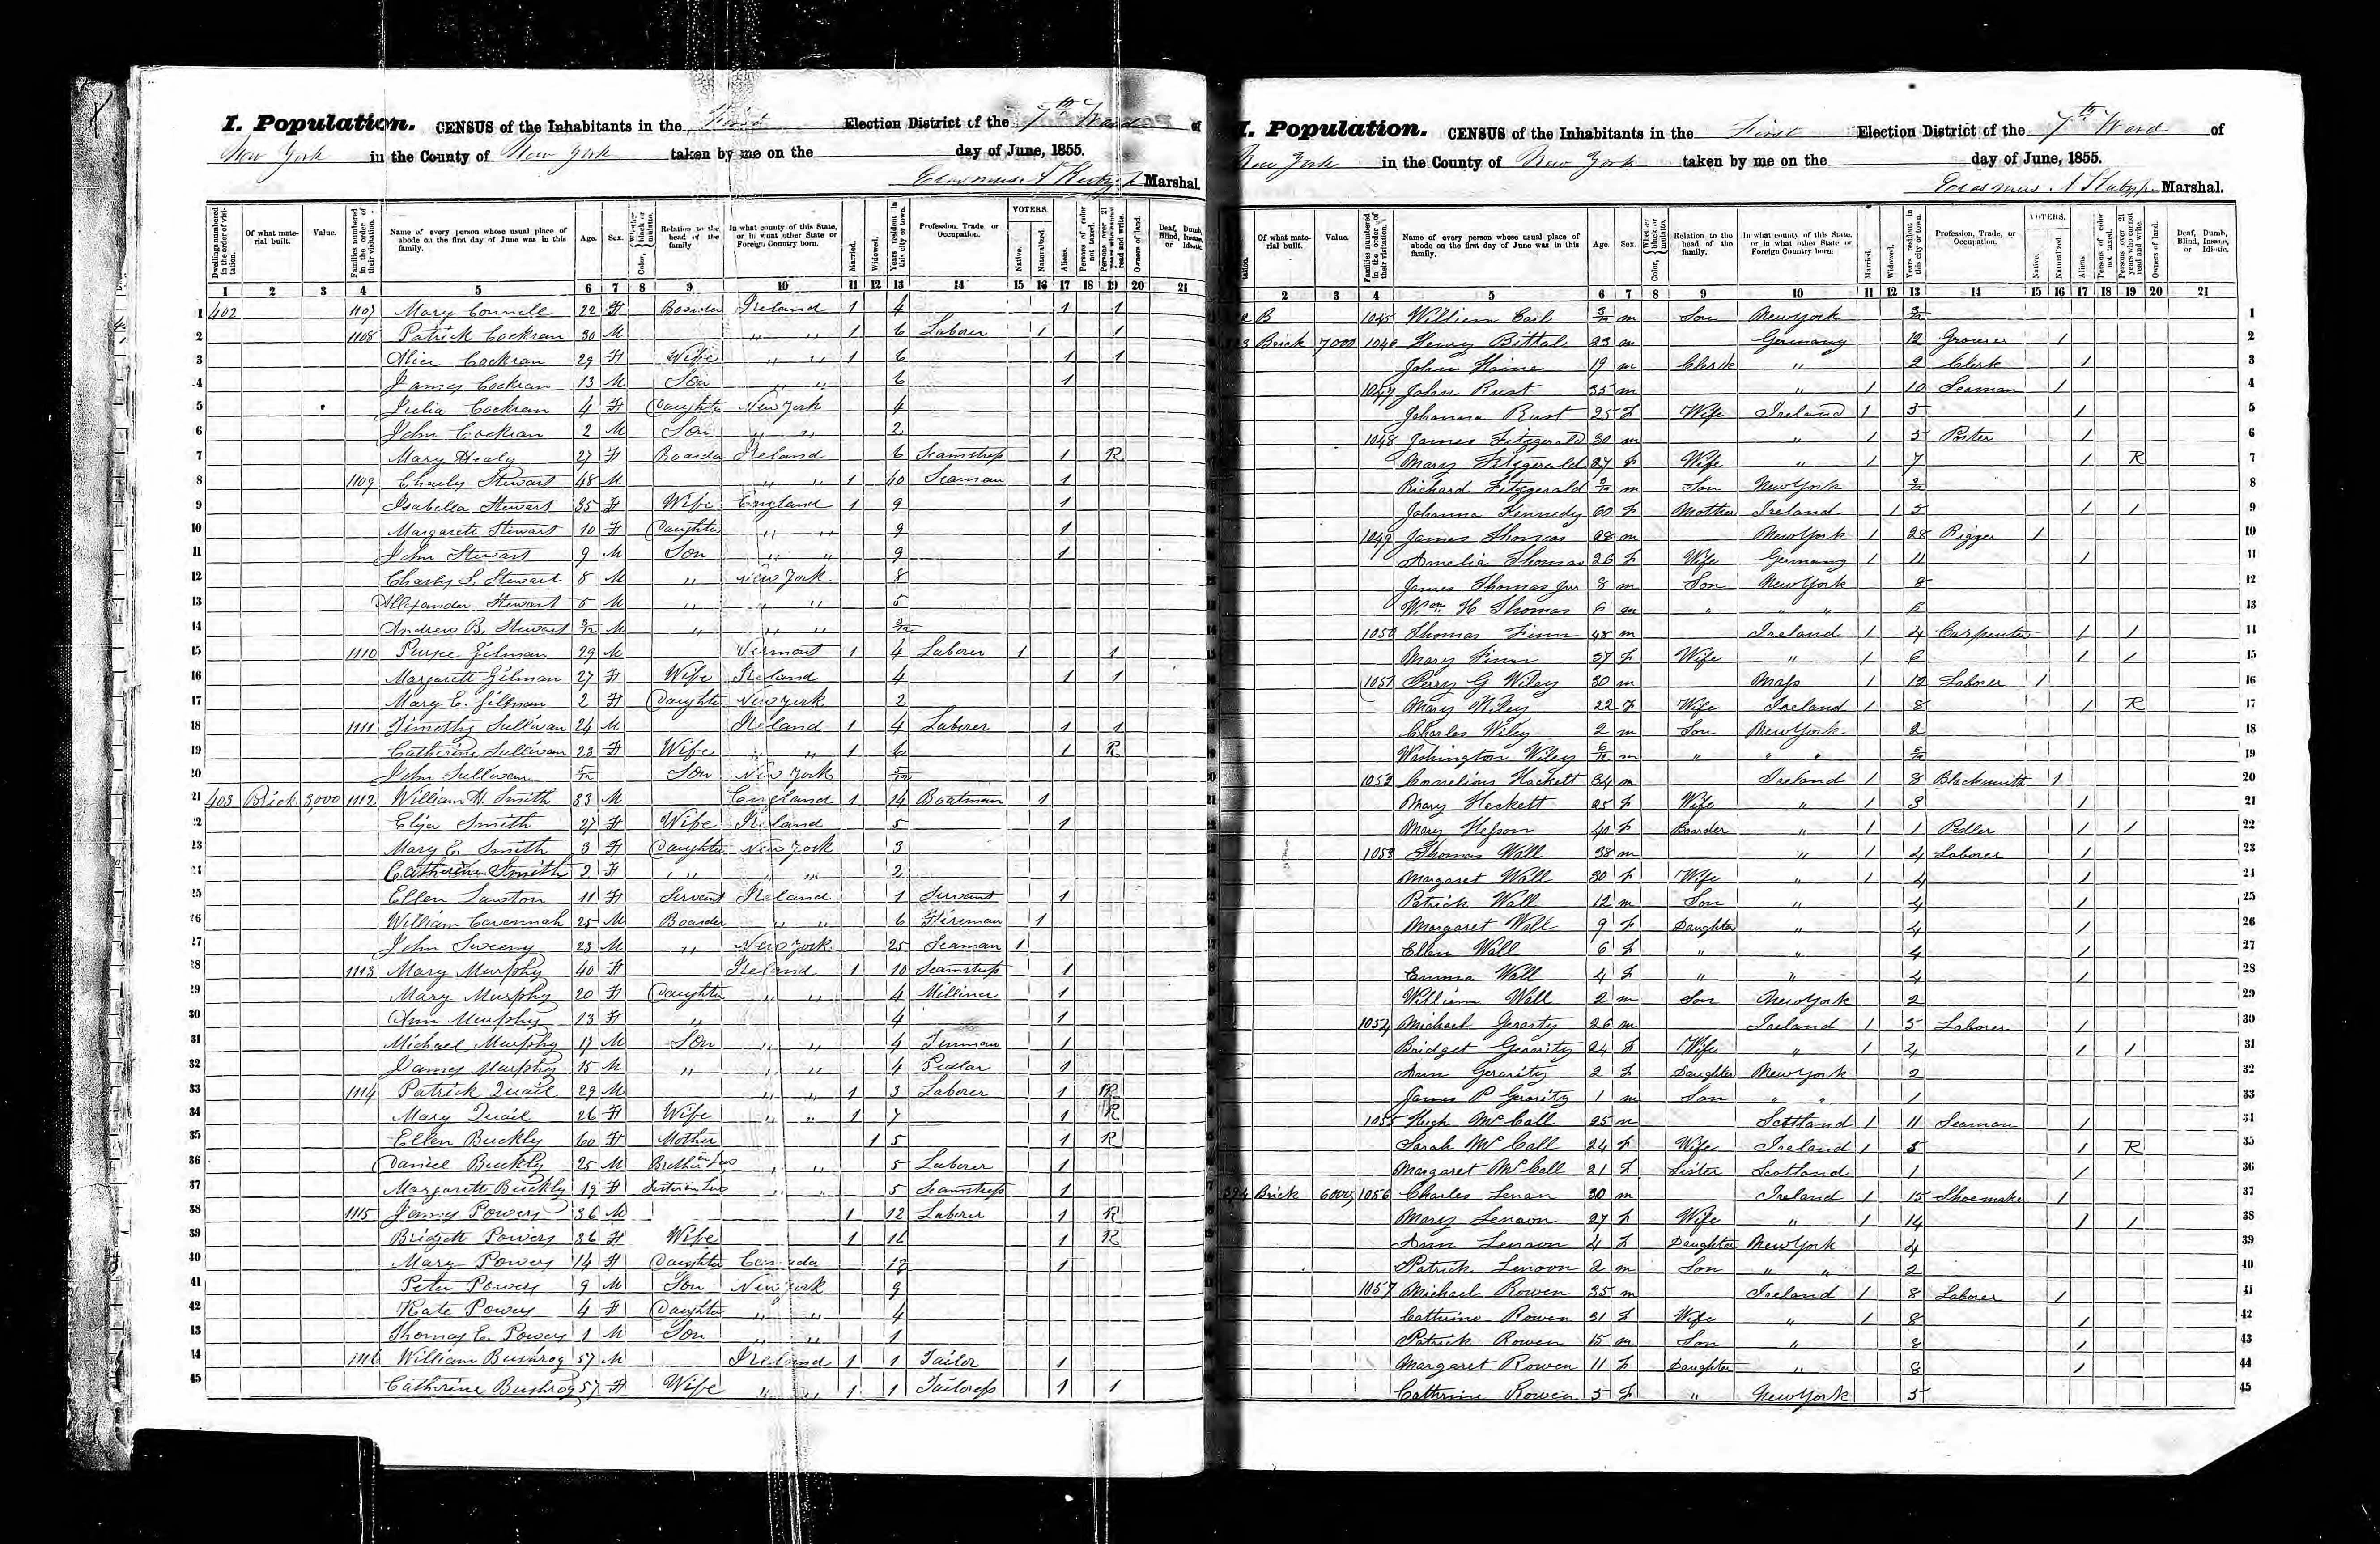 I. Population. CENSUS of the Inhabitants in the First Election District of the 7th Ward of
New York in the County of New York taken by me on the day of June, 1855.
Marshal.
Dwellings numbered in the order of visitation. Of what material built. Value. Families numbered in the order of their visitation. Name of every person whose usual place of abode on the first day of June was in this family. Age. Sex. Color, Whether black or mulatto. Relation to the head of the family In what county of this State, or in what other State or Foreign Country born. Married. Widowed. Years resident in this city or town. Profession, Trade, or Occupation. VOTERS. Native. Naturalized. Aliens. Persons of color not taxed. Persons over 21 years who cannot read and write. Owners of land. Deaf, Dumb, Blind, Insane, or Idiotic.
1 2 3 4 5 6 7 8 9 10 11 12 13 14 15 16 17 18 19 20 21
1 402 1107 Mary Connell 22 F Boarder Ireland 1 4 1 1
2 1108 Patrick Cockran 30 M " " 1 6 Laborer 1 1
3 Alice Cockran 29 F Wife " " 1 6 1 1
4 James Cockran 13 M Son " " 6 1
5 Julia Cockran 4 F Daughter New York 4
6 John Cockran 2 M Son " " 2
7 Mary Healy 27 F Boarder Ireland 6 Seamstress 1 R
8 1109 Charly Stewart 48 M " " 1 40 Seaman 1
9 Isabella Stewart 35 F Wife England 1 9 1
10 Margarett Stewart 10 F Daughter " " 9 1
11 John Stewart 9 M Son " " 9 1
12 Charly S. Stewart 8 M " New York 8
13 Allexander Stewart 5 M " " " 5
14 Andrew B. Stewart 9/12 M " " " 9/12
15 1110 Gilman 29 M Vermont 1 4 Laborer 1 1
16 Margarett Gilman 27 F Wife Ireland 4 1 1
17 Mary E. Gilman 2 F Daughter New York 2
18 1111 Timothy Sullivan 24 M Ireland 1 4 Laborer 1 1
19 Catherine Sullivan 23 F Wife " " 1 6 1 R
20 John Sullivan 5/12 Son New York 5/12
21 403 Brick 3,000 1112 William H. Smith 33 M England 1 14 Boatman 1
22 Eliza Smith 27 F Wife Ireland 5 1
23 Mary E. Smith 3 F Daughter New York 3
24 Catherine Smith 2 F " " " 2
25 Ellen Lawton 11 F Servant Ireland 1 Servant 1
26 William Cavennah 25 M Boarder " " 6 Fireman 1
27 John Sweeny 23 M " New York 25 Seaman 1
28 1113 Mary Murphy 40 F Ireland 1 10 Seamstress 1
29 Mary Murphy 20 F Daughter " " 4 Milliner 1
30 Ann Murphy 13 F " 4 1
31 Michael Murphy 17 M Son " " 4 Tinman 1
32 James Murphy 15 M " " " 4 Pedlar 1
33 1114 Patrick Quail 29 M " " 1 3 Laborer 1 R
34 Mary Quail 26 F Wife " " 1 7 1 R
35 Ellen Buckly 60 F Mother 1 5 1 R
36 Daniel Buckly 25 M Brother in Law " " 5 Laborer 1
37 Margarett Buckly 19 F Sister in Law " " 5 Seamstress 1
38 1115 James Powers 36 M 1 12 Laborer 1 R
39 Bridgett Powers 36 F Wife 1 16 1 R
40 Mary Powers 14 F Daughter Canada 1
41 Peter Powers 9 M Son New York 9
42 Kate Powers 4 F Daughter " " 4
43 Thomas E. Powers 1 M Son " " 1
44 1116 William Bushrog 57 M Ireland 1 1 Tailor 1
45 Catherine Bushrog 57 F Wife " " 1 1 Tailoress 1 1
I. Population. CENSUS of the Inhabitants in the First Election District of the 7th Ward of
New York in the County of New York taken by me on the day of June, 1855.
Erasmus Marshal.
Of what material built. Value. Families numbered in the order of their visitation. Name of every person whose usual place of abode on the first day of June was in this family. Age. Sex. Color, Whether black or mulatto. Relation to the head of the family. In what county of this State, or in what other State or Foreign Country born. Married. Widowed. Years resident in this city or town. Profession, Trade, or Occupation. VOTERS. Native. Naturalized. Aliens. Persons of color not taxed. Persons over 21 years who cannot read and write. Owners of land. Deaf, Dumb, Blind, Insane, or Idiotic.
2 3 4 5 6 7 8 9 10 11 12 13 14 15 16 17 18 19 20 21
B 1045 William Earl 3/12 m Son New York 3/12 1
Brick 7000 1046 Henry Bittal 23 m Germany 12 Grocer 1 2
John Haine 19 m Clerk " 2 Clerk 1 3
1047 John Rust 35 m " 1 10 Seaman 1 4
Johanna Rust 25 f Wife Ireland 1 5 1 5
1048 James Fitzgerald 30 m " 1 5 Porter 1 6
Mary Fitzgerald 27 f Wife " 1 7 1 R 7
Richard Fitzgerald 9/12 m Son New York 9/12 8
Johanna Kennedy 60 f Mother Ireland 1 5 1 1 9
1049 James Thomas 28 m New York 1 28 Rigger 1 10
Amelia Thomas 26 f Wife Germany 1 11 1 11
James Thomas Jun 8 m Son New York 8 12
Wm. H Thomas 6 m " " " 6 13
1050 Thomas Finn 48 m Ireland 1 4 Carpenter 1 1 14
Mary Finn 37 f Wife " 1 6 1 1 15
1051 Perry G Wiley 30 m Mass 1 12 Laborer 1 16
Mary Wiley 22 f Wife Ireland 1 8 1 R 17
Charles Wiley 2 m Son New York 2 18
Washington Wiley 6/12 m " " " 6/12 19
1052 Cornelius Hackett 34 m Ireland 1 8 Blacksmith 1 20
Mary Hackett 25 f Wife " 1 3 1 21
Mary Hesson 40 f Boarder " 1 1 Pedler 1 1 22
1053 Thomas Wall 38 m " 1 4 Laborer 1 23
Margaret Wall 30 f Wife " 1 4 1 24
Patrick Wall 12 m Son " 4 1 25
Margaret Wall 9 f Daughter " 4 1 26
Ellen Wall 6 f " " 4 1 27
Emma Wall 4 f " " 4 1 28
William Wall 2 m Son New York 2 29
1054 Michael Gerarty 26 m Ireland 1 5 Laborer 1 30
Bridget Gerarity 24 f Wife " 1 4 1 1 31
Ann Gerarity 2 f Daughter New York 2 32
James P Gerarity 1 m Son " " 1 33
1055 Hugh McCall 25 m Scttland 1 11 Seaman 1 34
Sarah McCall 24 f Wife Ireland 1 5 1 R 35
Margaret McCall 21 f Sister Scotland 1 1 36
394 Brick 6000 1056 Charles Lenan 30 m Ireland 1 15 Shoemaker 1 37
Mary Lenaon 27 f Wife " 1 14 1 1 38
Ann Lenaon 4 f Daughter New York 4 39
Patrick Lenoon 2 m Son " " 2 40
1057 Michael Rowen 35 m Ireland 1 8 Laborer 1 41
Catherine Rowen 31 f Wife " 1 8 1 42
Patrick Rowen 15 m Son " 8 1 43
Margaret Rowen 11 f Daughter " 8 1 44
Cathrine Rowen 5 f " New York 5 45